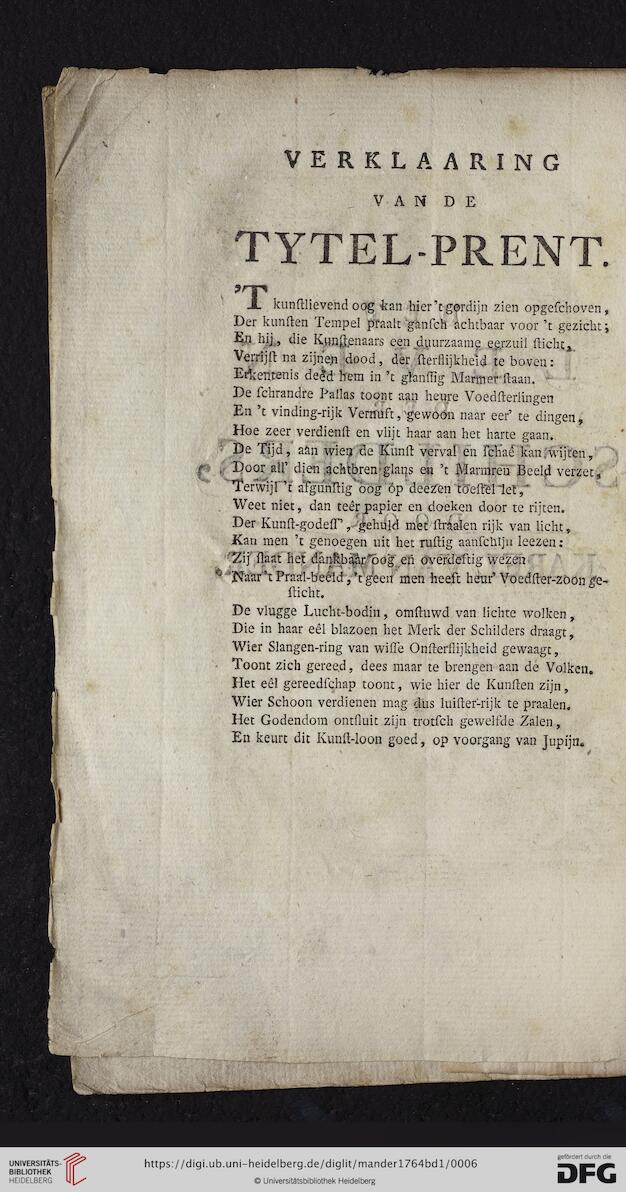 VERKLAARING
VAN DE
TYTEL-PRENT.
'T kunſtlievend oog kan hier 't gordijn zien opgeſchoven,
Der kunſten Tempel praalt ganſch achtbaar voor 't gezicht;
En hij, die Kunſtenaars een duurzaame eerzuil ſticht,
Verrijſt na zijnen dood, der ſterflijkheid te boven:
Erkentenis deed hem in 't glanſſig Marmer ſtaan.
De ſchrandre Pallas toont aan heure Voedſterlingen
En 't vinding-rijk Vernuft, gewoon naar eer' te dingen,
Hoe zeer verdienſt en vlijt haar aan het harte gaan.
De Tijd, aan wien de Kunſt verval en ſchaé kan wijten,
Door all' dien achtbren glans en 't Marmren Beeld verzet,
Terwijl 't afgunſtig oog op deezen toeſtel let,
Weet niet, dan teêr papier en doeken door te rijten.
Der Kunſt-godeſſ', gehuld met ſtraalen rijk van licht,
Kan men 't genoegen uit het ruſtig aanſchijn leezen:
Zij ſlaat het dankbaar oog en overdeftig wezen
Naar 't Praal-beeld, 't geen men heeft heur' Voedſter-zoon ge-
ſticht.
De vlugge Lucht-bodin, omſtuwd van lichte wolken,
Die in haar eêl blazoen het Merk der Schilders draagt,
Wier Slangen-ring van wiſſe Onſterflijkheid gewaagt,
Toont zich gereed, dees maar te brengen aan de Volken.
Het eêl gereedſchap toont, wie hier de Kunſten zijn,
Wier Schoon verdienen mag dus luiſter-rijk te praalen.
Het Godendom ontſluit zijn trotſch gewelfde Zalen,
En keurt dit Kunſt-loon goed, op voorgang van Jupijn.
UNIVERSITÄTS-
BIBLIOTHEK
HEIDELBERG
https://digi.ub.uni-heidelberg.de/diglit/mander1764bd1/0006
© Universitätsbibliothek Heidelberg
gefördert durch die
DFG